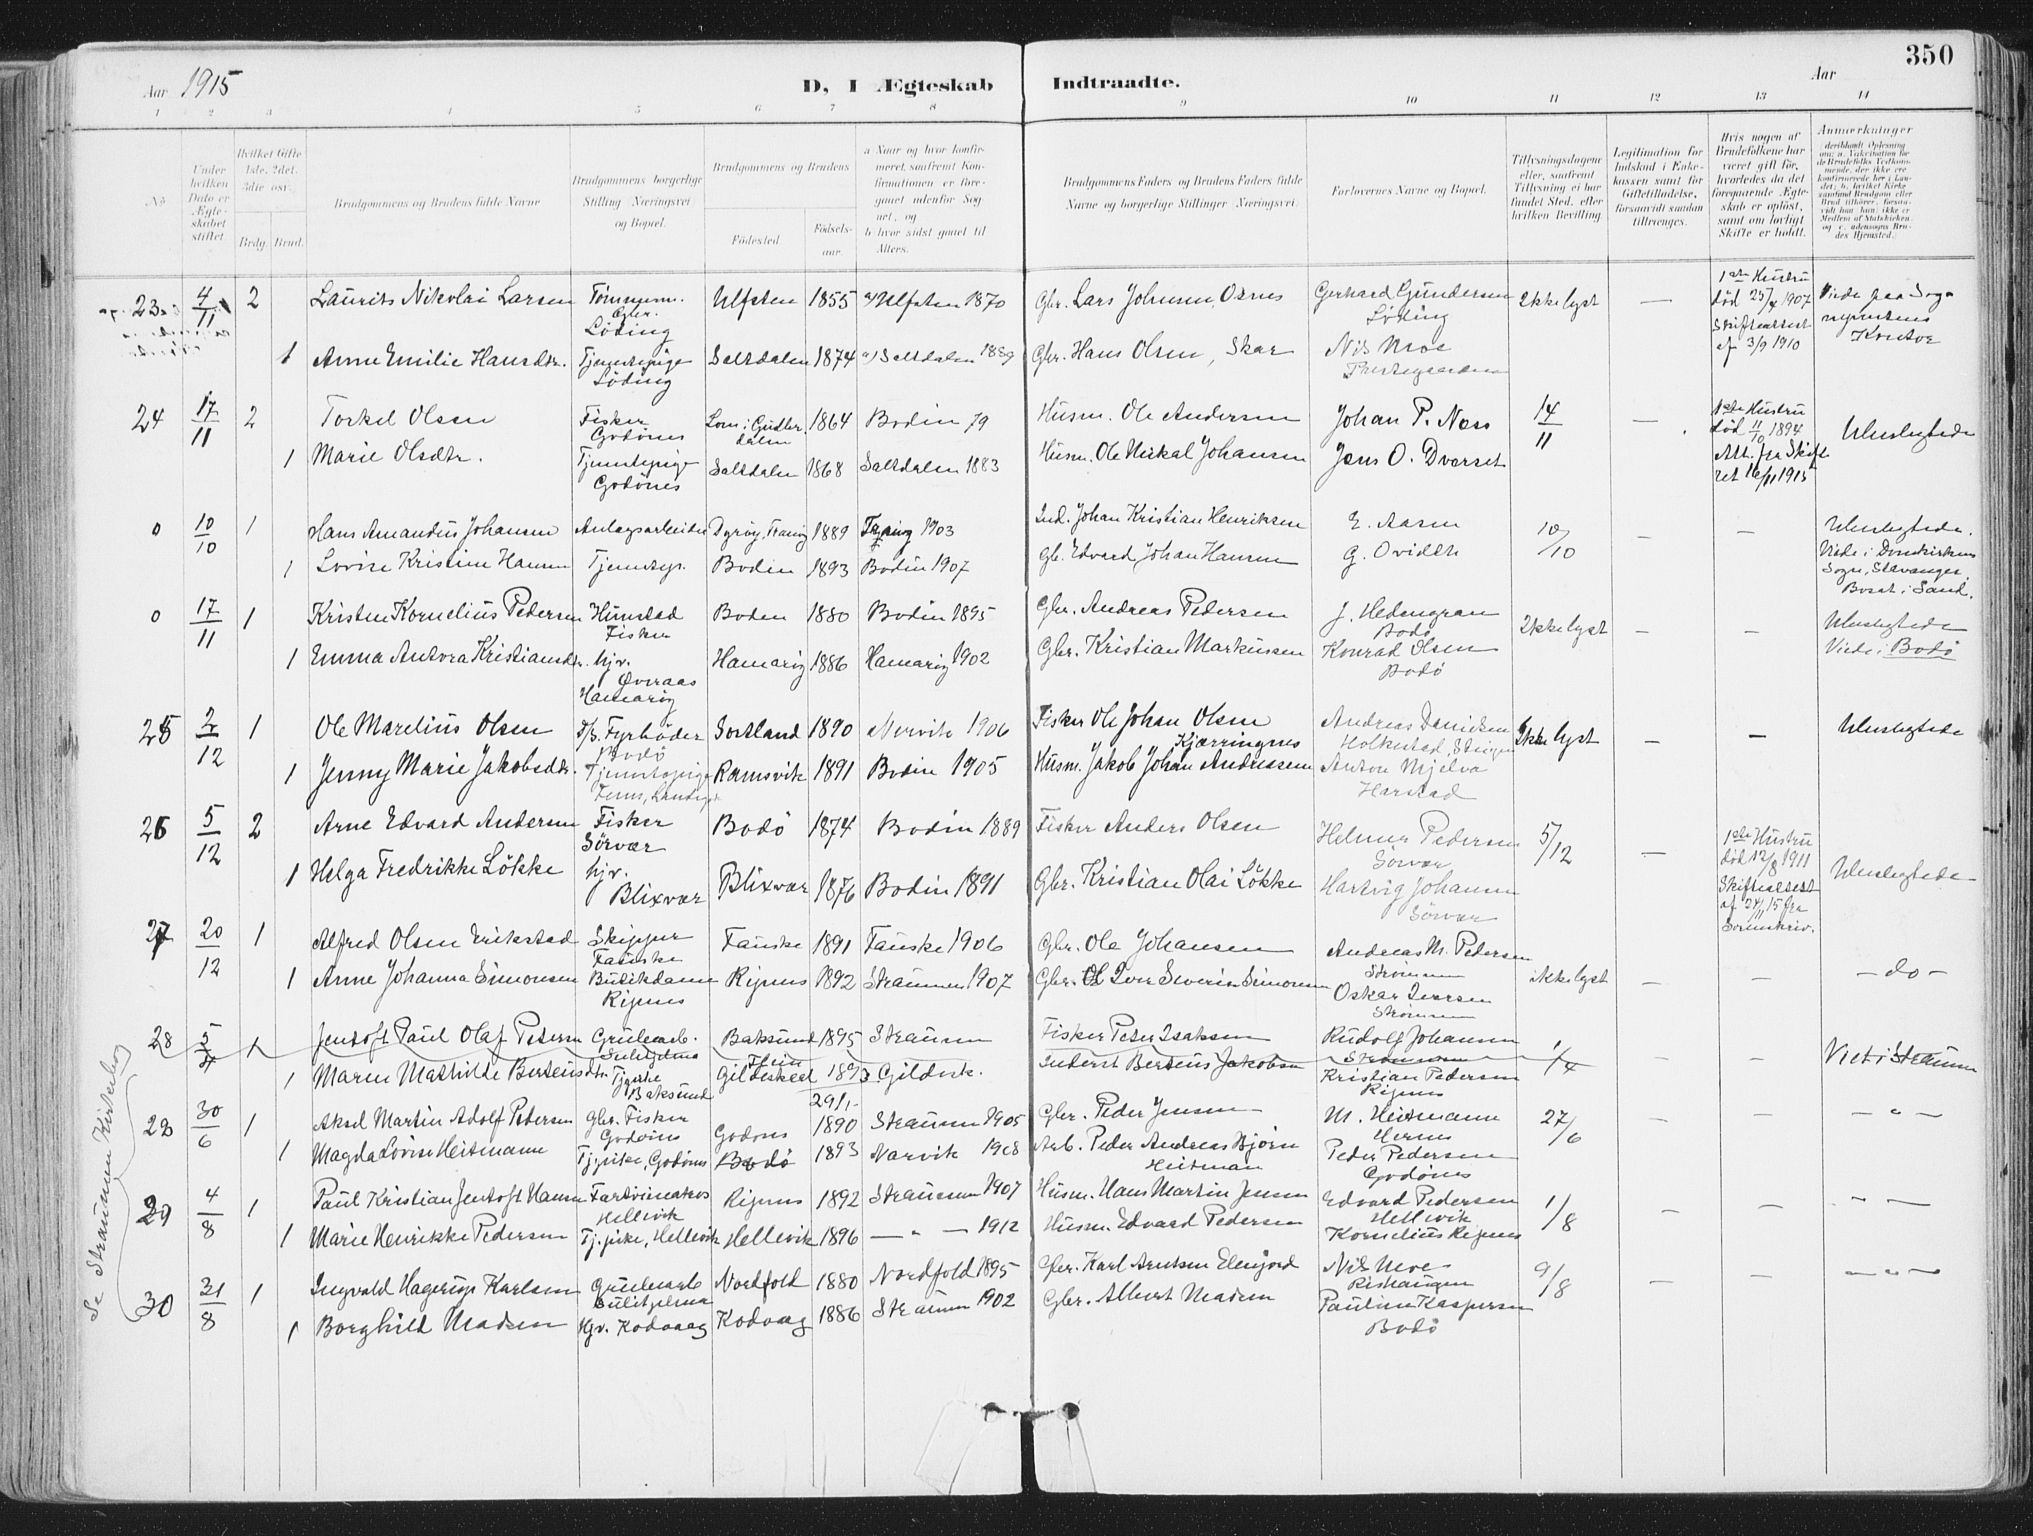 350
Aar 1915
D, I Ægteskab Indtraadte.
Aar
1 2 3 4 5 6 7 8 9 10 11 12 13 14
No
Under hvilken Dato er Ægteskabet stiftet.
Hvilket Gifte 1ste, 2det, 3die osv.
Brdg. Brud.
Brudgommens og Brudens fulde Navne
Brudgommens borgerlige Stilling Næringsvei og Bopæl.
Brudgommens og Brudens
Fødested.
Fødselsaar.
a Naar og hvor konfirmeret, saafremt Konfirmationen er foregaaet udenfor Sognet, og
b hvor sidst gaaet til Alters.
Brudgommens Faders og Brudens Faders fulde Navne og borgerlige Stillinger Næringsvei.
Forlovernes Navne og Bopæl.
Tillysningsdagene eller, saafremt Tillysning ei har fundet Sted, efter hvilken Bevilling.
Legitimation for Indskud i Enkekassen samt for Giftetilladelse, forsaavidt saadan tiltrænges.
Hvis nogen af Brudefolkene har været gift før, hvorledes da det foregaaende Ægteskab er opløst, samt om lovligt Skifte er holdt.
Anmærkninger
23 4/11 2 Laurits Nikolai Larsen Tømmerm. Gbr. Löding Ulfsten 1855 a) Ulfsten 1870 Gbr. Lars Johnsen, Osnes Gerhard Gundersen Löding Ikke lyst — 1ste Hustru død 25/4 1907 Skifteattest af 3/9 1910 Viede paa Sogneprestens Kontor
1 Anne Emilie Hansdtr. Tjenestepige Löding Saltdalen 1874 a) Saltdalen 1889 Gbr. Hans Olsen, Skar Nils Moe
24 17/11 2 Torkel Olsen Fisker Godönes Lom i Gudbr.dalen 1864 Bodin 79 Husm. Ole Andersen Johan P. Næss 14/11 — 1ste Hustru død 11/10 1894 Att. fra Skifteret 16/11 1915 Ubeslegtede
1 Marie Olsdtr. Tjenestepige Godönes Saltdalen 1868 Saltdalen 1883 Husm. Ole Mikal Johansen Jens O. Dverset
0 10/10 1 Hans Amandus Johansen Anlægsarbeider Dyröy, Tranöy 1889 Tranöy 1903 Ind. Johan Kristian Henriksen E. Aasen 10/10 — — Ubeslegtede. Viede i Domkirkens Sogn, Stavanger. Bosat i Sand.
1 Lovise Kristine Hansen Tjenestep. Bodin 1893 Bodin 1907 Gb. Edvard Johan Hansen G. Ovidth
0 17/11 1 Kristen Kornelius Pedersen Himstad Fisker Boden 1880 Bodin 1895 Gbr. Andreas Pedersen J. Hedengran Bodø Ikke lyst — — Ubeslegtede Viede i Bodö
1 Emma Antora Kristiansdtr. hjv. Överaas Hamaröy Hamaröy 1886 Hamaröy 1902 Gbr. Kristian Markussen Konrad Olsen Bodö
25 2/12 1 Ole Marelius Olsen D/S Fyrböder Bodö Sortland 1890 Narvik 1906 Fisker Ole Johan Olsen Kjærringnes Andreas Danielsen Ikke lyst — — Ubeslegtede
1 Jenny Marie Jakobsdtr. Tjenestepige Ramsvik 1891 Bodin 1905 Husm. Jakob Johan Andreasen Anton Mjelva Harstad
26 5/12 2 Arne Edvard Andersen Fisker Sörvær Bodö 1874 Bodin 1889 Fisker Anders Olsen Helmer Pedersen Sörvær 5/12 — 1ste Hustru död 12/8 1911 Skifteattest af 24/11 15 fra Sorenskriv. Ubeslegtede
1 Helga Fredrikke Lökke hjv. Blixvær Blixvær 1876 Bodin 1891 Gbr. Kristian Olai Lökke Hartvig Johansen Sörvær
27 20/12 1 Alfred Olsen Erikstad Skipper Fauske Fauske 1891 Fauske 1906 Gbr. Ole Johansen Andreas M. Pedersen Strömmen ikke lyst — — — do —
1 Anne Johanna Simonsen Butikdame Ripnes Ripnes 1892 Straumen 1907 Gbr. Iver Severin Simonsen Oskar Iversen Strömmen
Se Straumen Kirkebog
28 5/4 1 Jentoft Paul Olaf Petersen Grubearb. Sulitjelma Baksund 1895 Straumen Fisker Peter Isaksen Rudolf Johansen 1/4 — — Viet i Straumen
1 Maren Mathilde Berteusdtr. Tj.pike Baksund Gildeskaal 1893 Gildesk. Inderst Berteus Jakobsen Kristian Pedersen Ripnes
29 30/6 1 Aksel Martin Adolf Pedersen Gbr. Fisker Godönes Godönes 29/1- 1890 Straumen 1905 Gbr. Peder Jensen M. Heitmann Hernes 27/6 — — — " —
1 Magda Lovise Heitmann Tj.pike, Godönes Bodö 1893 Narvik 1908 Arb. Peder Andreas Bjørn Heitman Peder Pedersen Godönes
29 4/8 1 Paul Kristian Jentoft Hansen Hellevik Ripnes 1892 Straumen 1907 Husm. Hans Martin Jensen Edvard Pedersen Hellevik 1/8 — — — " —
1 Marie Henrikke Pedersen Tj.pike, Hellevik Hellevik 1896 — " — 1912 Husm. Edvard Pedersen Kornelius Ripnes
30 31/8 1 Ingvald Hagerup Karlsen Grubearb Sulitjelma Nordfold 1880 Nordfold 1895 Gbr. Karl Arntsen Elvefjord Nils Moe Rishaugen 9/8 — — — " —
1 Borghild Madsen Hjv. Kodvaag Kodvaag 1886 Straumen 1902 Gbr. Albert Madsen Pauline Kaspersen Bodö